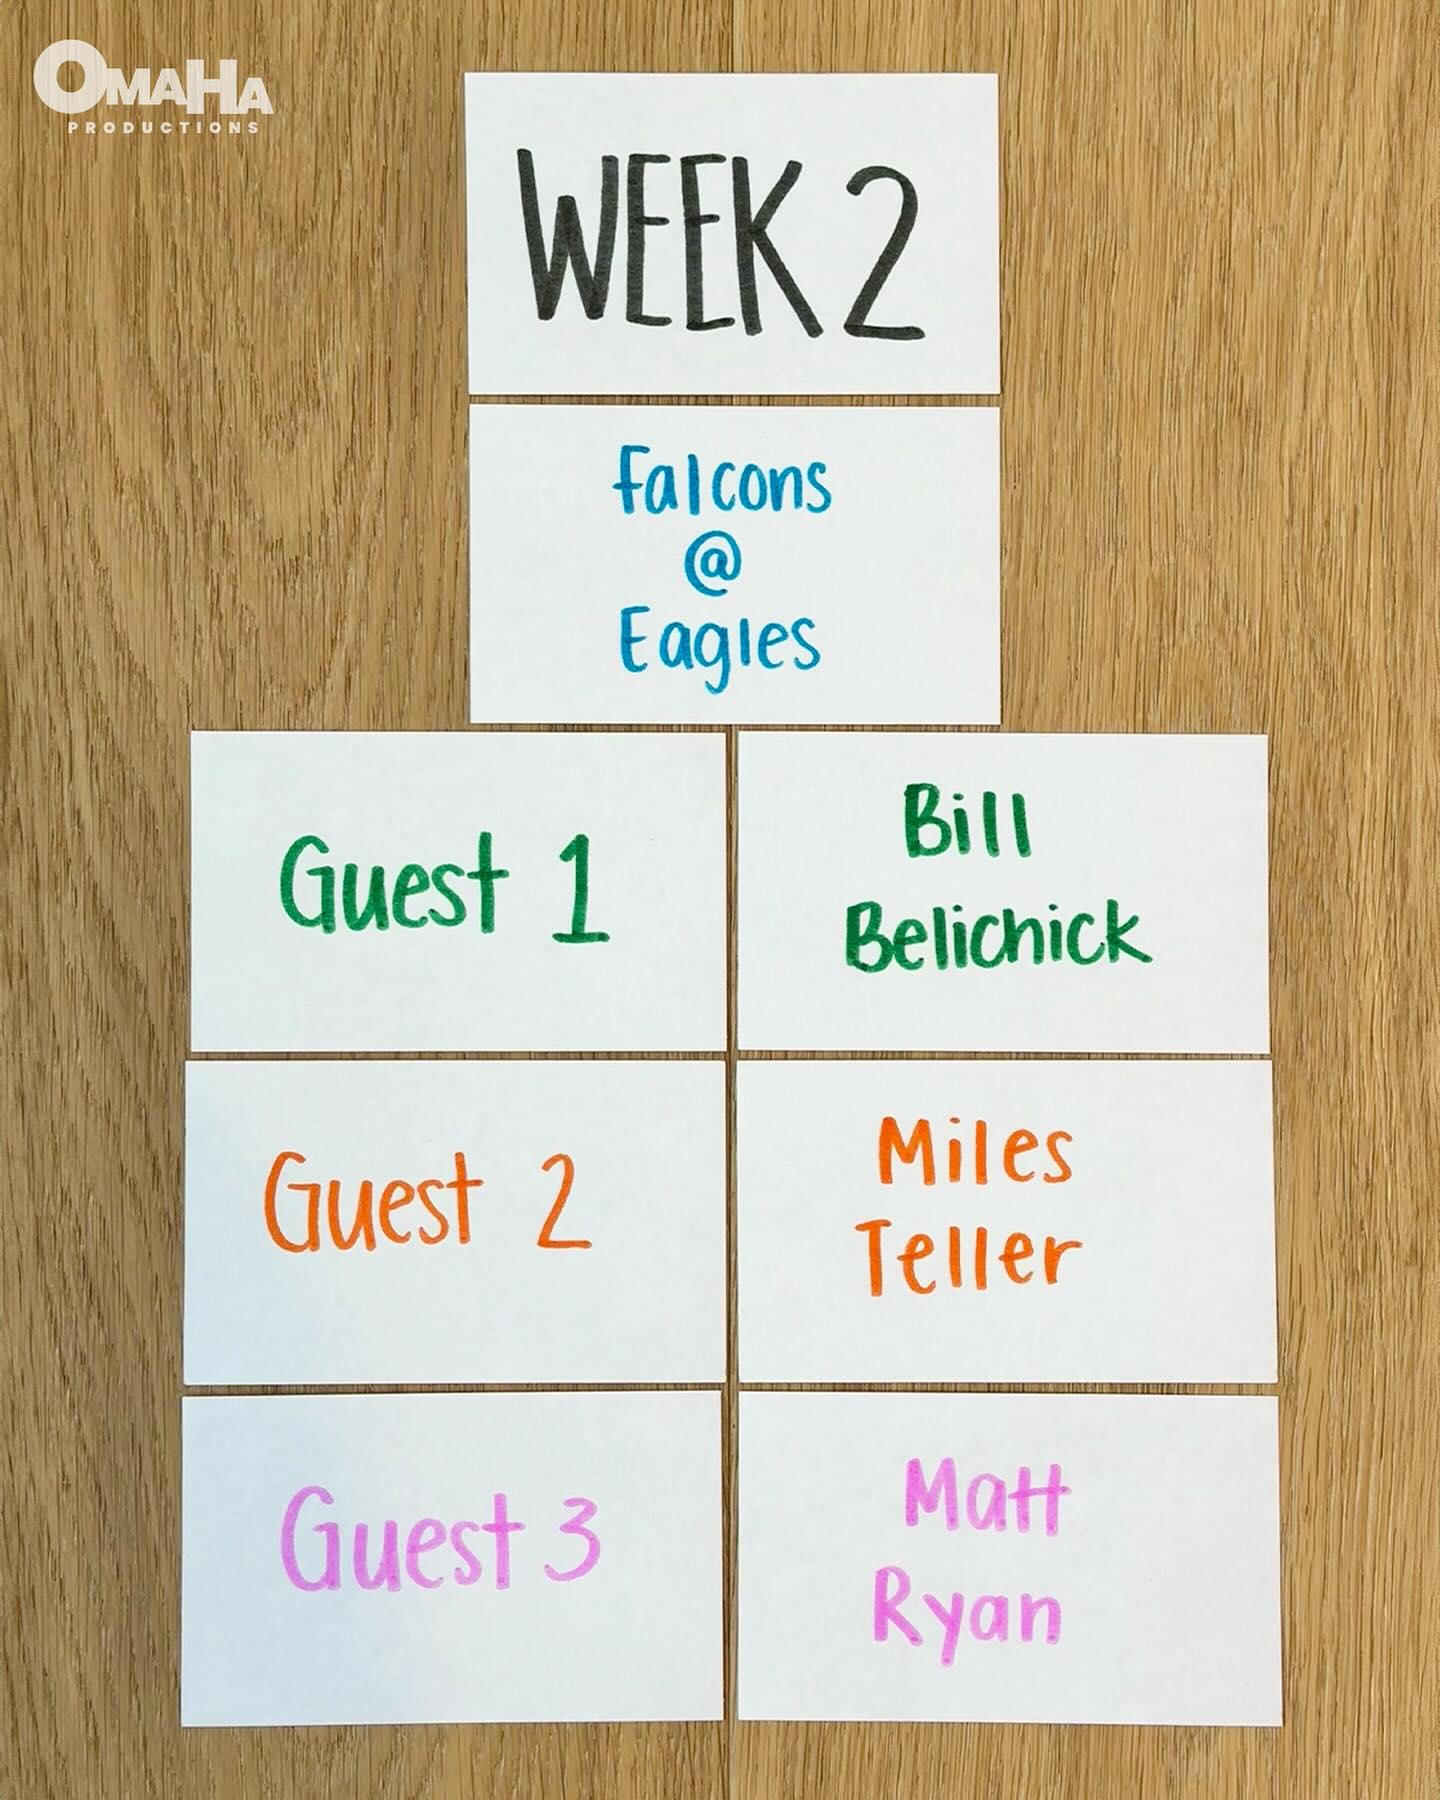 OMAHA
PRODUCTIONS
WEEK 2
Falcons
@
Eagles
Guest 1
Bill
Belichick
Guest 2
Miles
Teller
Guest 3
Matt
Ryan